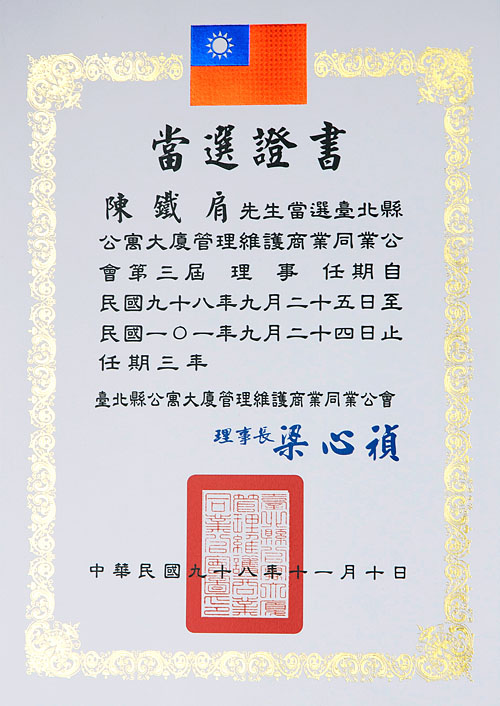 當選證書
陳鐵肩先生當選臺北縣
公寓大廈管理維護商業同業公
會第三屆 理事 任期自
民國九十八年九月二十五日至
民國一〇一年九月二十四日止
任期三年
臺北縣公寓大廈管理維護商業同業公會
理事長 梁心禎
中華民國九十八年十一月十日